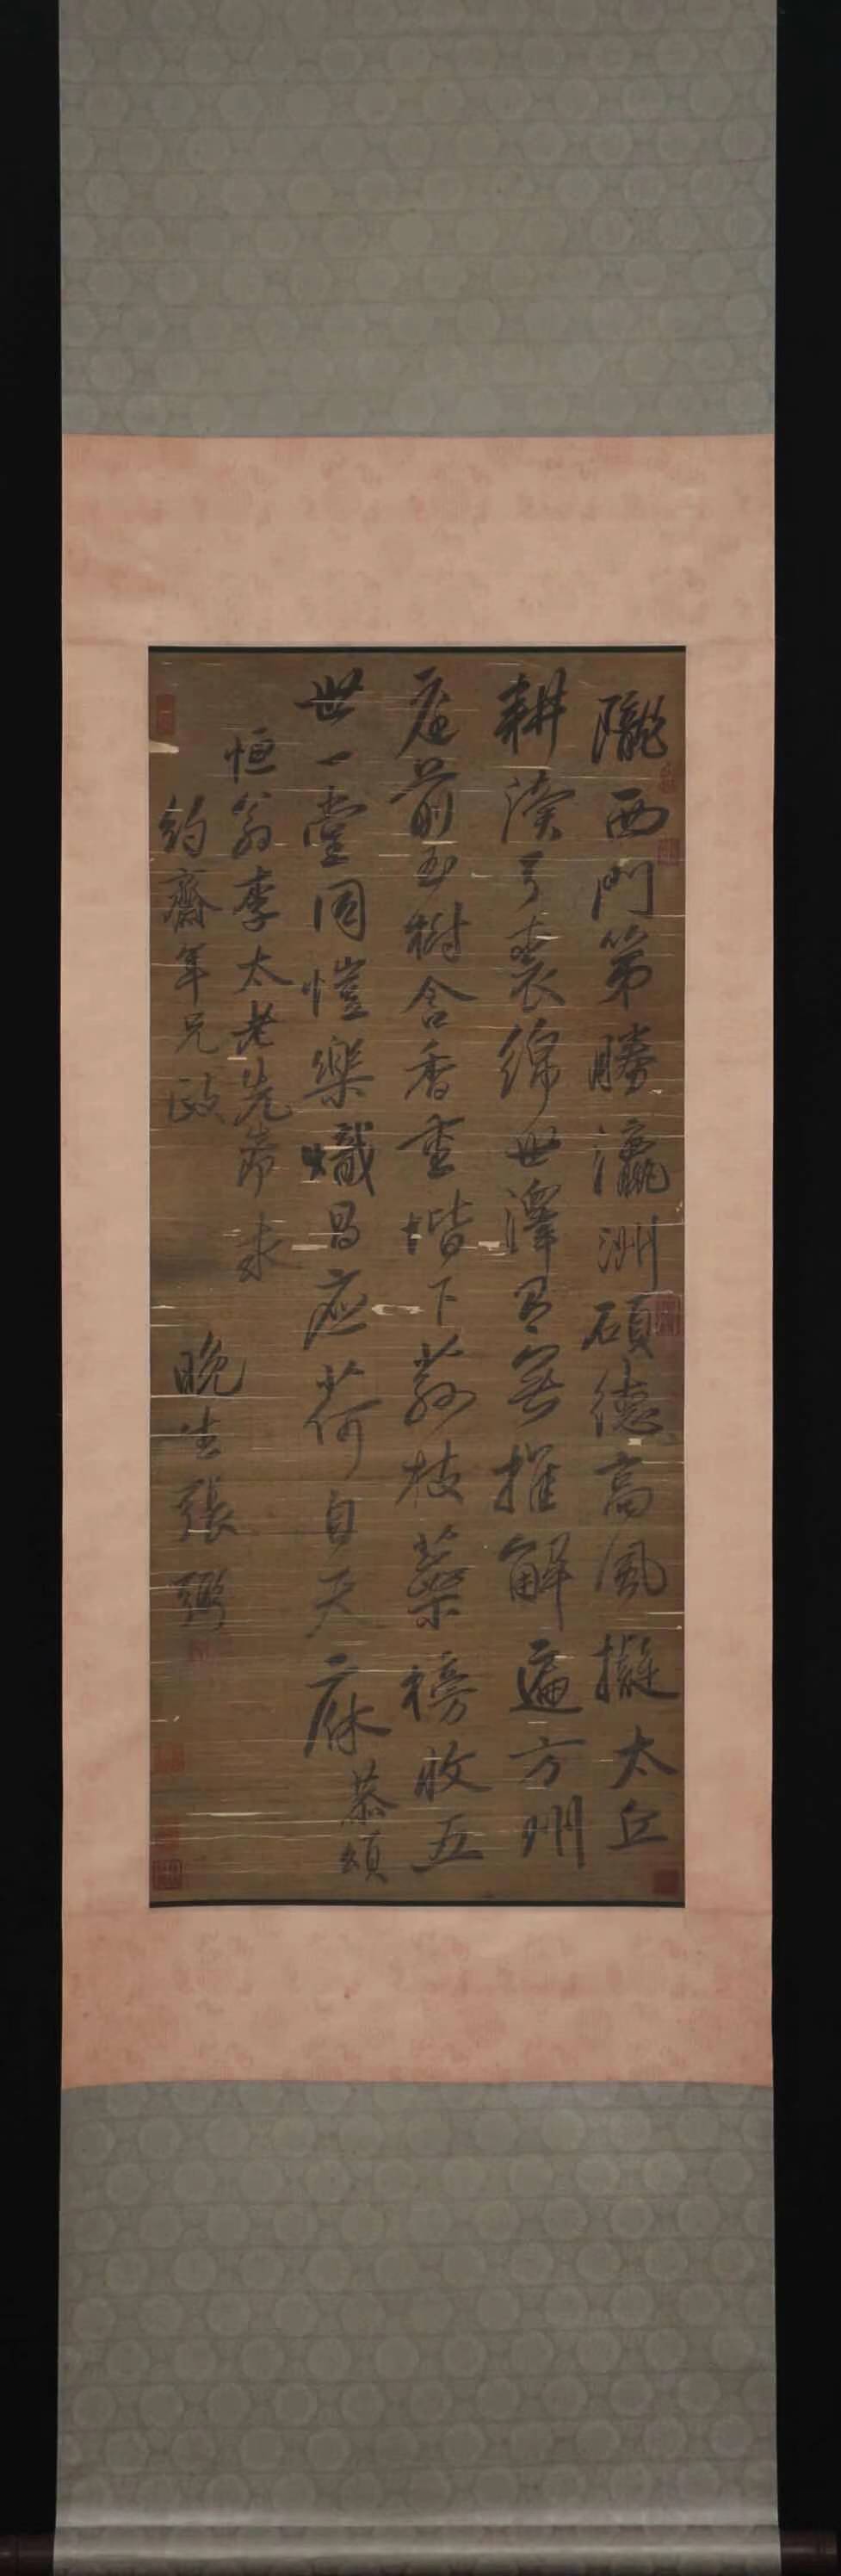 隴西門第勝瀛洲碩德高風擬太丘
耕讀弓裘綿世澤罗推解遍方州
庭前玉樹含香重階下荔枝蘂榜收五
世一堂同愷樂熾昌應荷自天庥恭頌
恒翁李太老先
約齋年兄政
晚生張弼